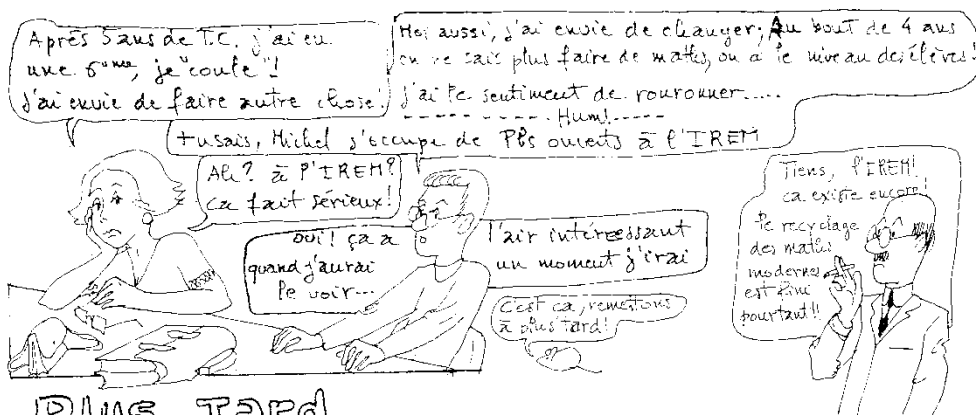 Après 5 ans de T.C. j'ai eu
une 6ème, je "coule"!
J'ai envie de faire autre chose!
Moi aussi, j'ai envie de changer; Au bout de 4 ans
on ne sait plus faire de maths, on a le niveau des élèves!
J'ai le sentiment de ronronner.....
Hum!
tu sais, Michel s'occupe de Pbs ouverts à l'IREM
Ah? à l'IREM?
ca fait sérieux!
oui! ça a l'air intéressant
quand j'aurai un moment j'irai
le voir...
C'est ca, remettons
à plus tard!
Tiens, l'IREM!
ca existe encore!
le recyclage
des maths
modernes
est fini
pourtant!!
PLUS TARD